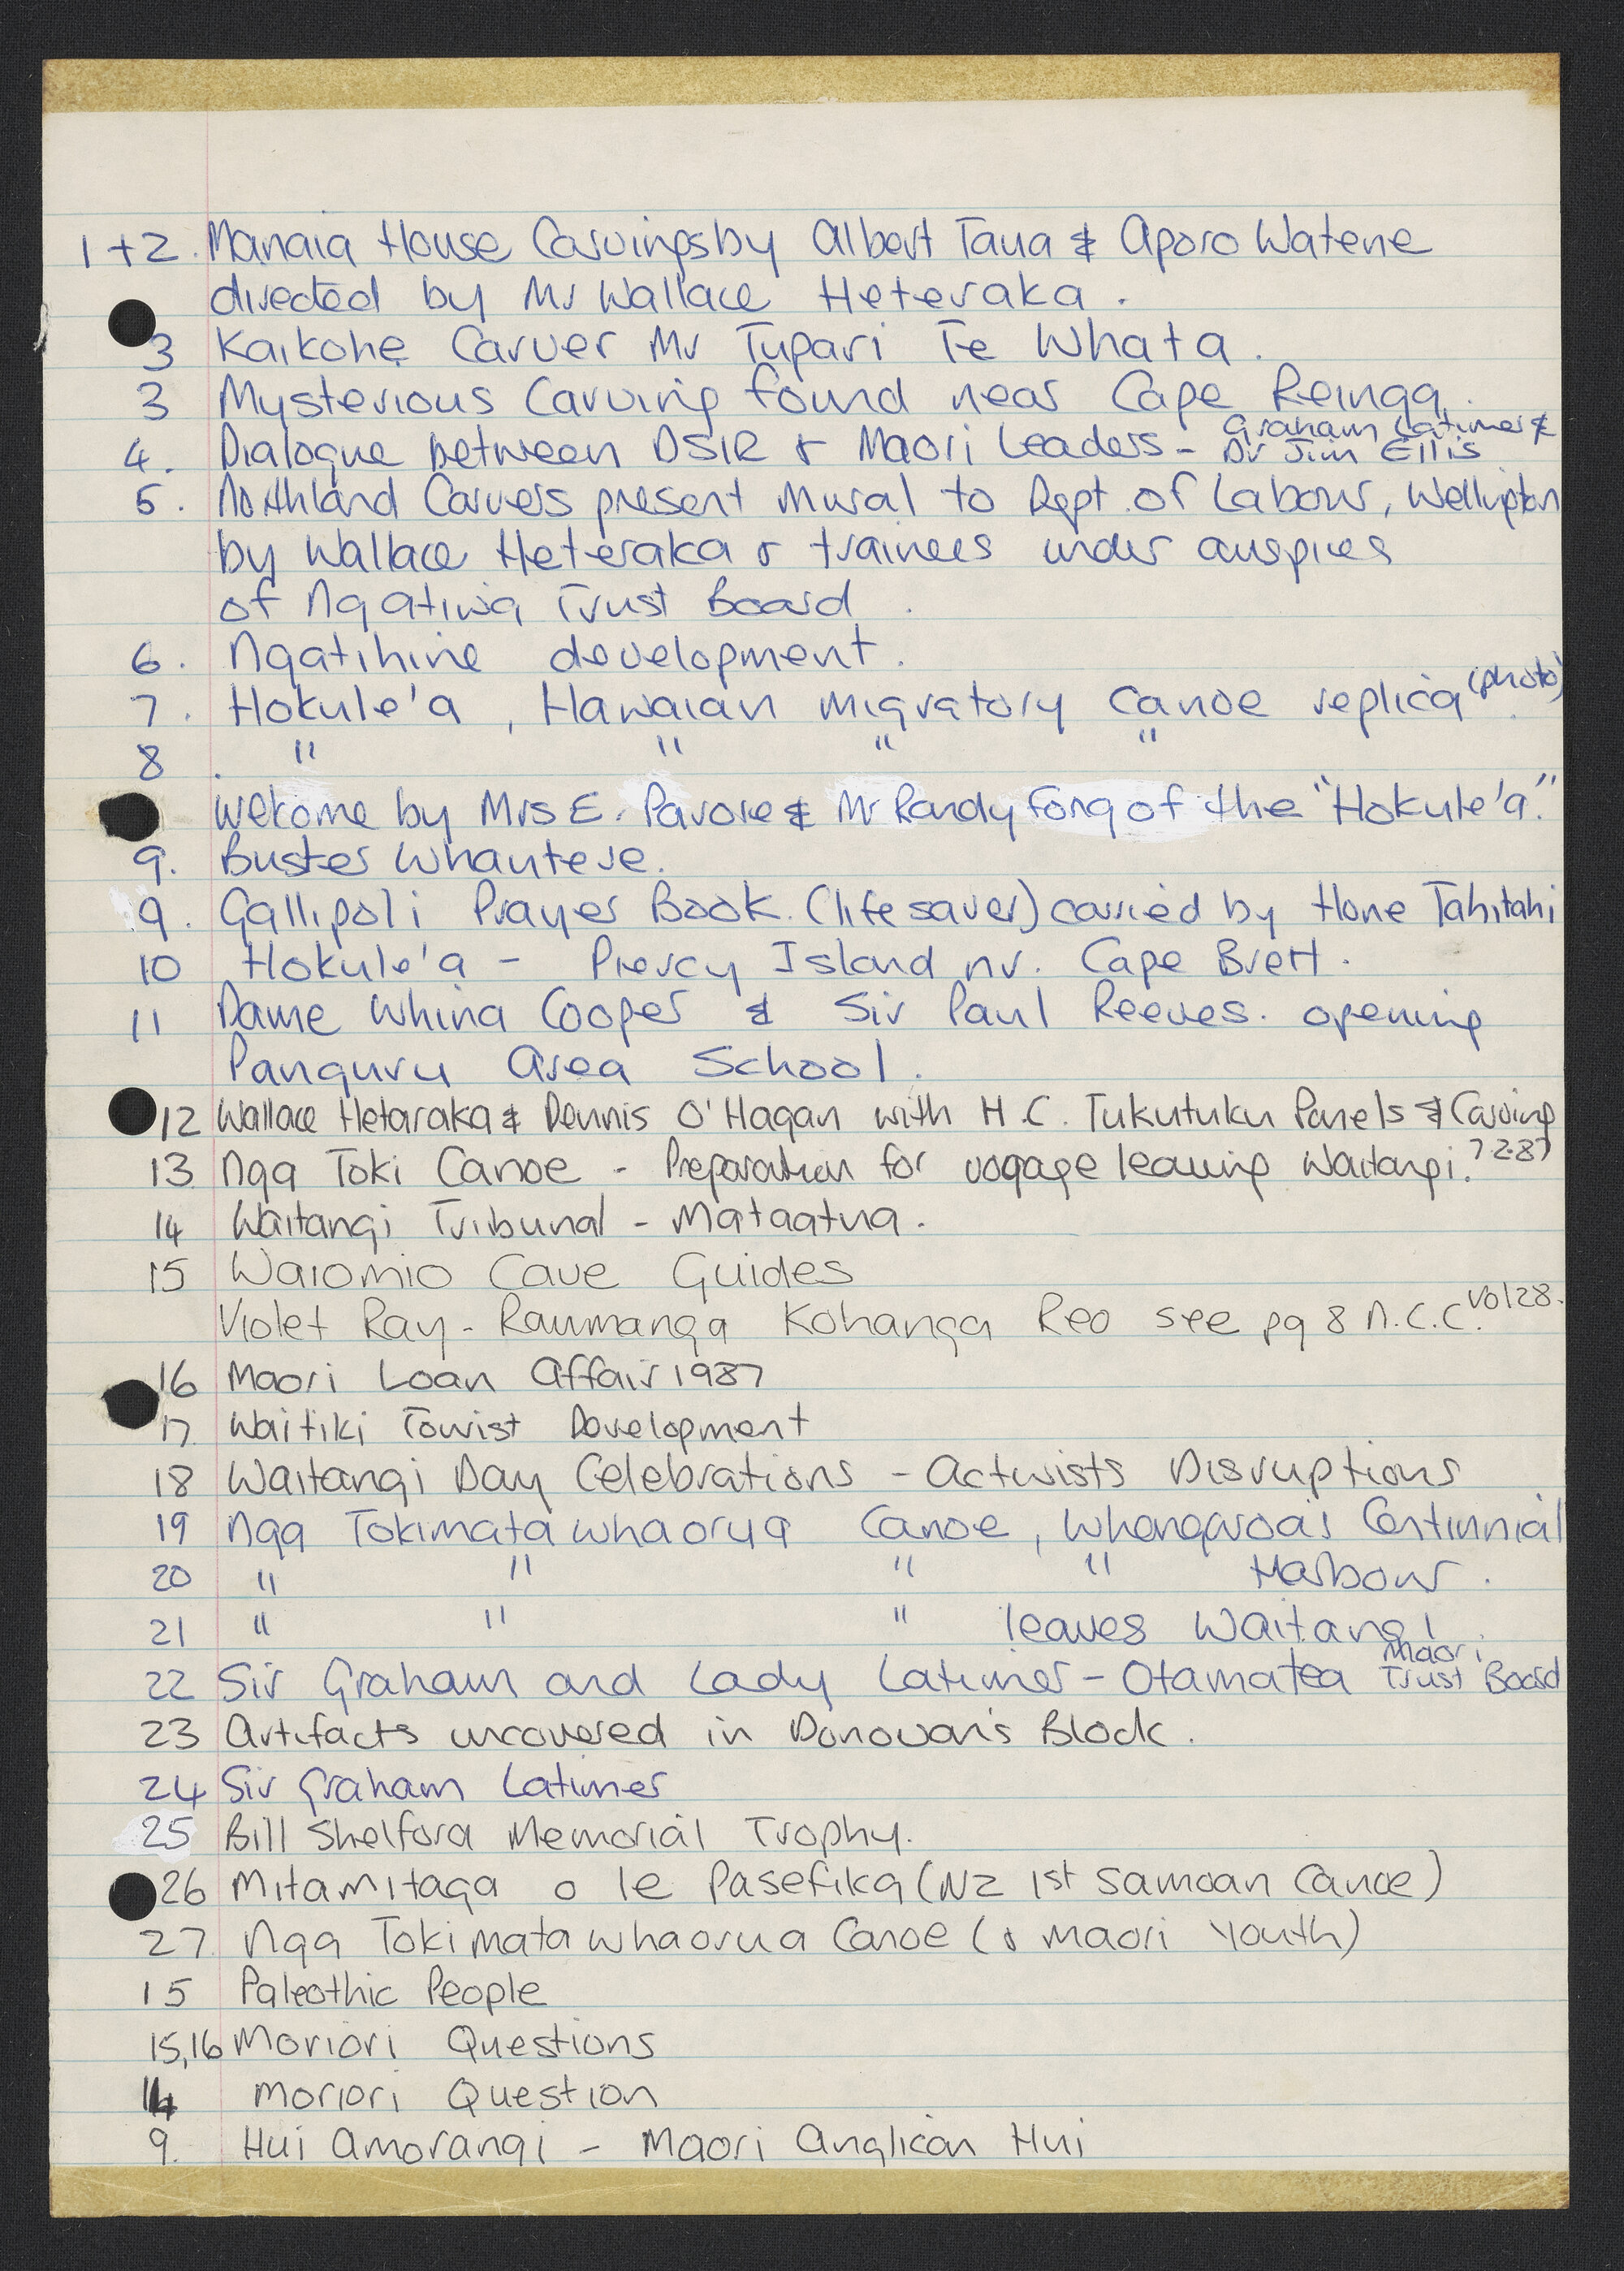 1+2. Manaia House Carvings by Albert Taua & Aporo Watene
directed by Mr Wallace Heteraka.
3 Kaikohe Carver Mr Tupari Te Whata.
3 Mysterious Carving found near Cape Reinga.
4. Dialogue between DSIR & Maori Leaders - Graham Latimer & Dr Jim Ellis
5. Northland Carvers present Mural to Dept. of Labour, Wellington
by Wallace Heteraka & trainees under auspices
of Ngatiwai Trust Board.
6. Ngatihine development.
7. Hokule'a, Hawaian migratory canoe replica (photo).
8. " " " "
Welcome by Mrs E. Pavore & Mr Randy Fong of the "Hokule'a."
9. Buster Whautere.
9. Gallipoli Prayer Book. (life saver) carried by Hone Tahitahi
10 Hokule'a - Piercy Island nr. Cape Brett.
11 Dame Whina Cooper & Sir Paul Reeves. opening
Panguru Area School.
12 Wallace Hetaraka & Dennis O'Hagan with H.C. Tukutuku Panels & Carving
13 Nga Toki Canoe - Preparation for voyage leaving Waitangi. 7.2.87
14 Waitangi Tribunal - Mataatua.
15 Waiomio Cave Guides
Violet Ray - Raumanga Kohanga Reo see pg 8 N.C.C. Vol 28.
16 Maori Loan Affair 1987
17 Waitiki Tourist Development
18 Waitangi Day Celebrations - Activists Disruptions
19 Nga Tokimatawhaorua Canoe, Whangaroa's Centinnial
20 " " " " Harbour.
21 " " " leaves Waitangi.
22 Sir Graham and Lady Latimer - Otamatea Maori Trust Board
23 Artifacts uncovered in Donovan's Block.
24 Sir Graham Latimer
25 Bill Shelford Memorial Trophy.
26 Mitamitaga o le Pasefika (NZ 1st Samoan Canoe)
27 Nga Tokimatawhaorua Canoe (& Maori Youth)
15 Paleothic People
15,16 Moriori Questions
14 Moriori Question
9. Hui Amorangi - Maori Anglican Hui